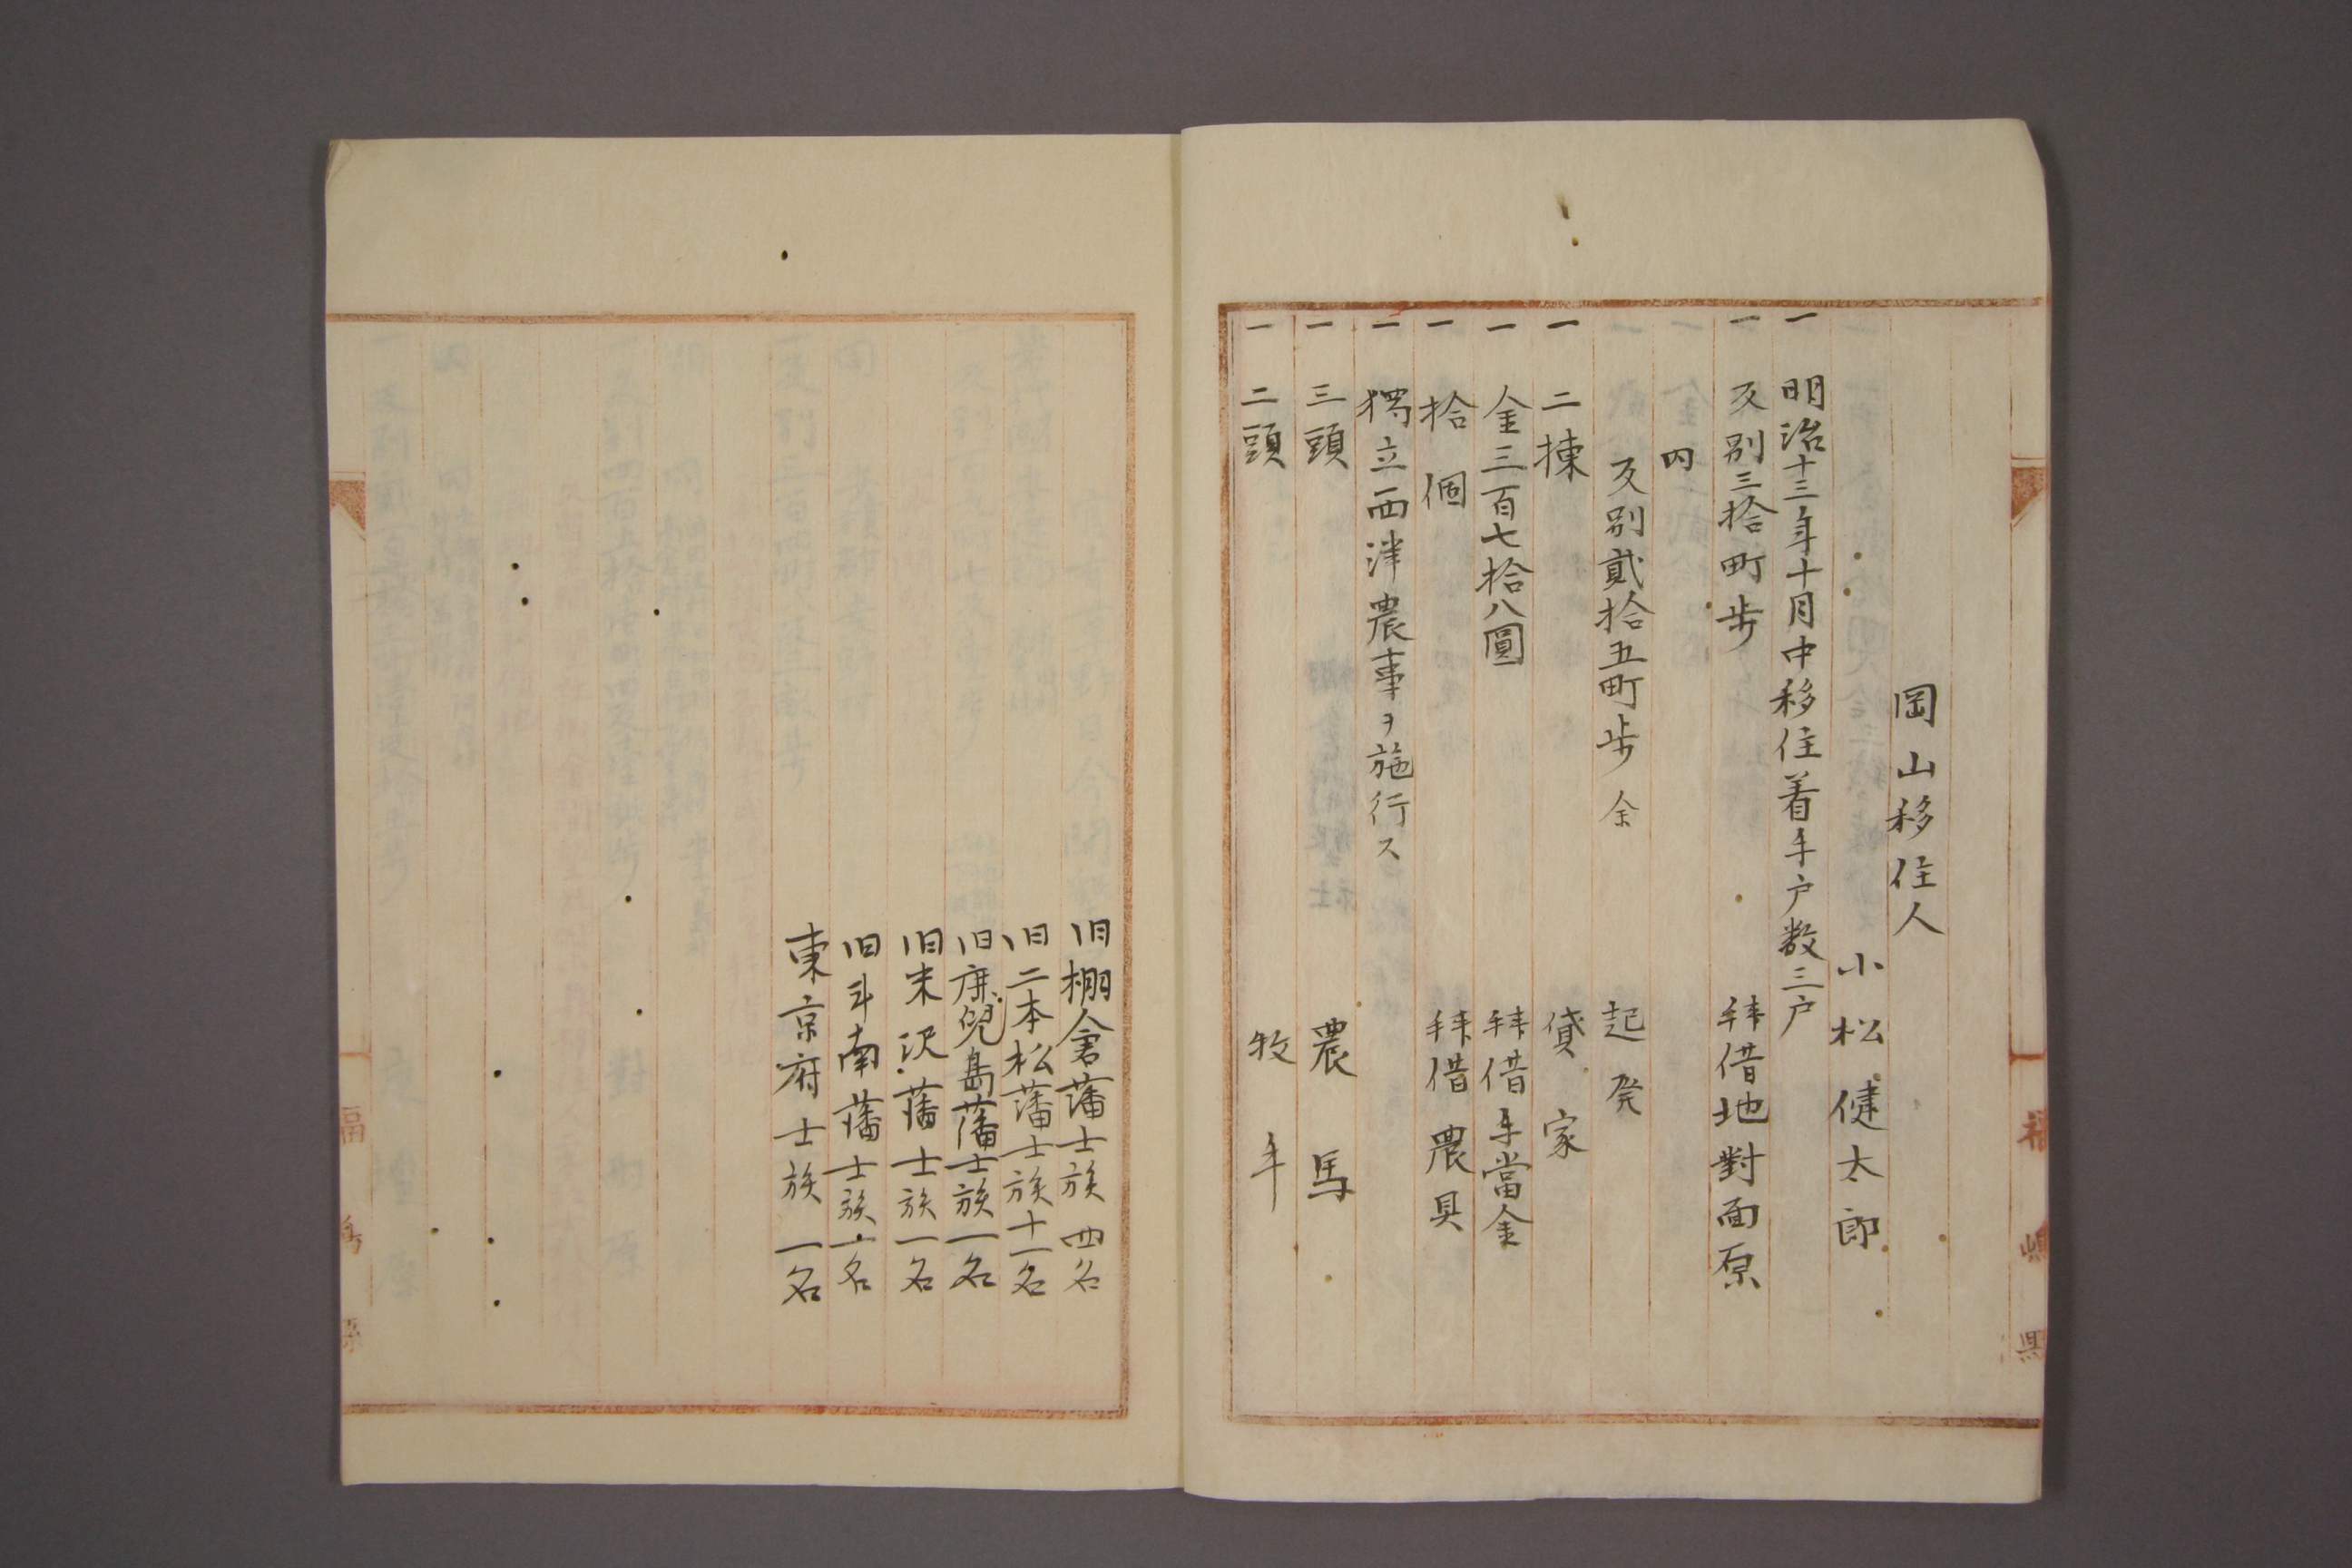 岡山移住人
小松健太郎
一 明治十三年十月中移住着手户数三户
一 反别三拾町歩 拜借地對面原
内
反别貳拾五町歩余 起発
一 二棟 貸家
一 金三百七拾八圓 拜借手當金
一 拾個 拜借農具
一 獨立西洋農事ヲ施行ス
一 三頭 農馬
一 二頭 牧牛
福嶋縣
旧棚倉藩士族四名
旧二本松藩士族十一名
旧鹿兒島藩士族一名
旧米沢藩士族一名
旧斗南藩士族一名
東京府士族一名
福嶋縣